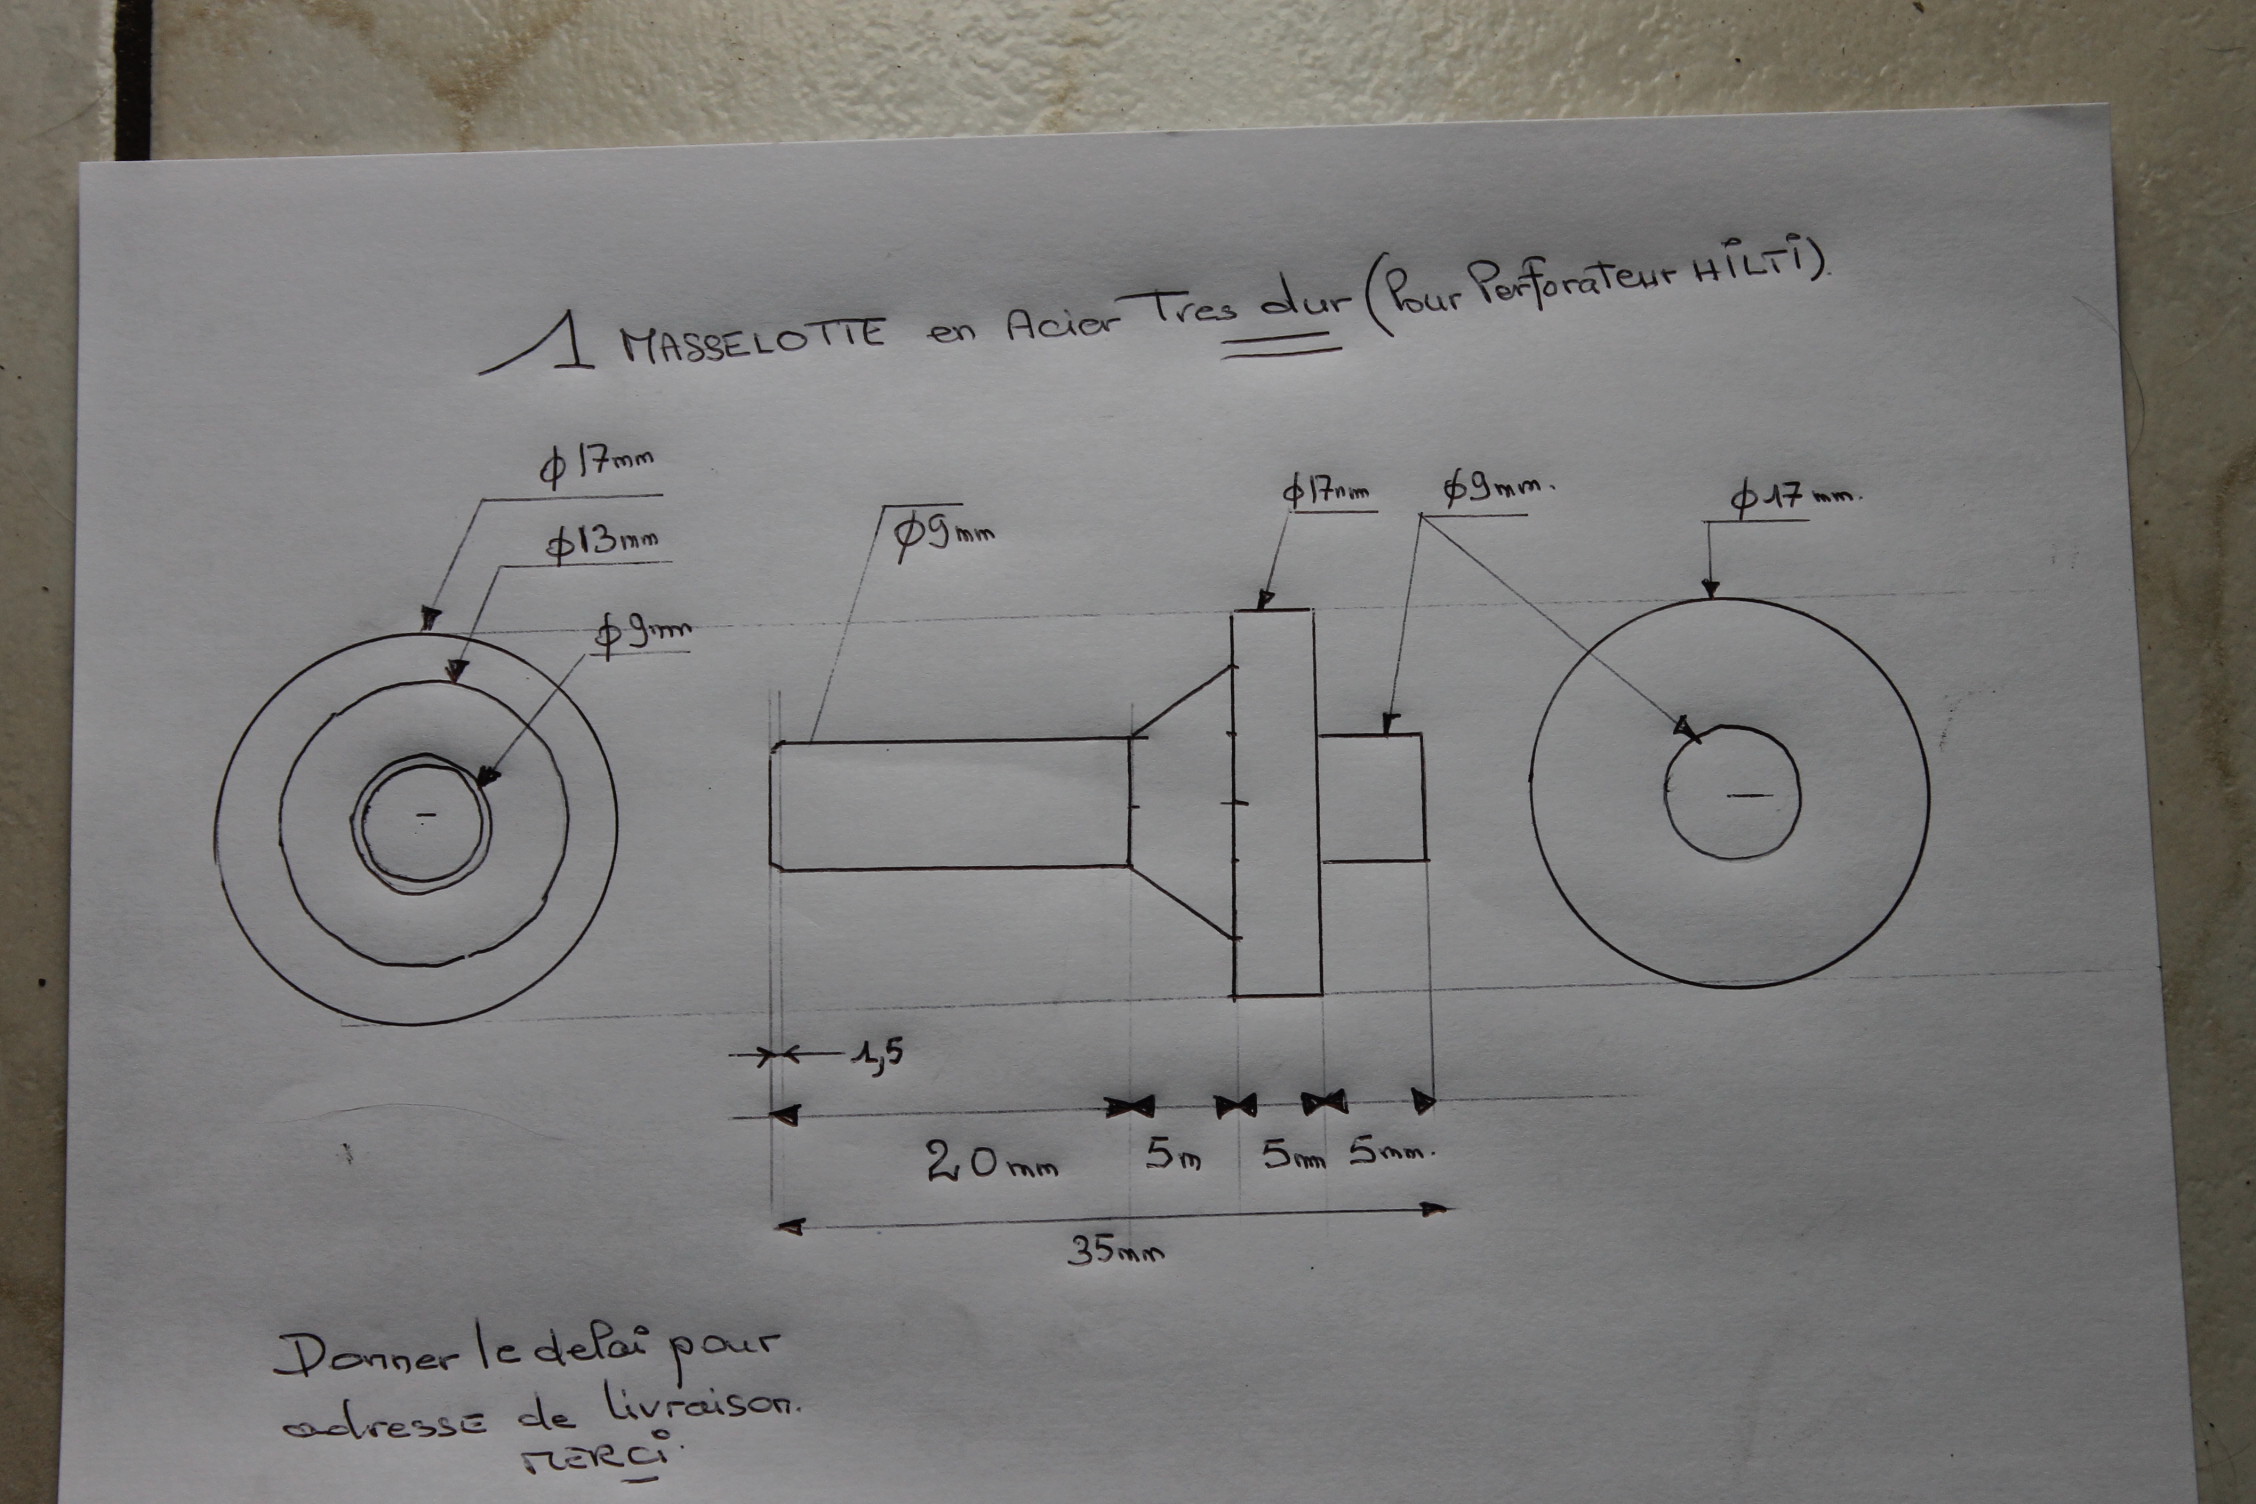 1 MASSELOTTE en Acier Tres dur (Pour Perforateur HILTI).
ϕ17mm
ϕ13mm
ϕ9mm
ϕ9mm
ϕ17mm
ϕ9mm.
ϕ17mm.
1,5
20mm 5m 5mm 5mm.
35mm
Donner le delai pour
adresse de livraison.
MERCI